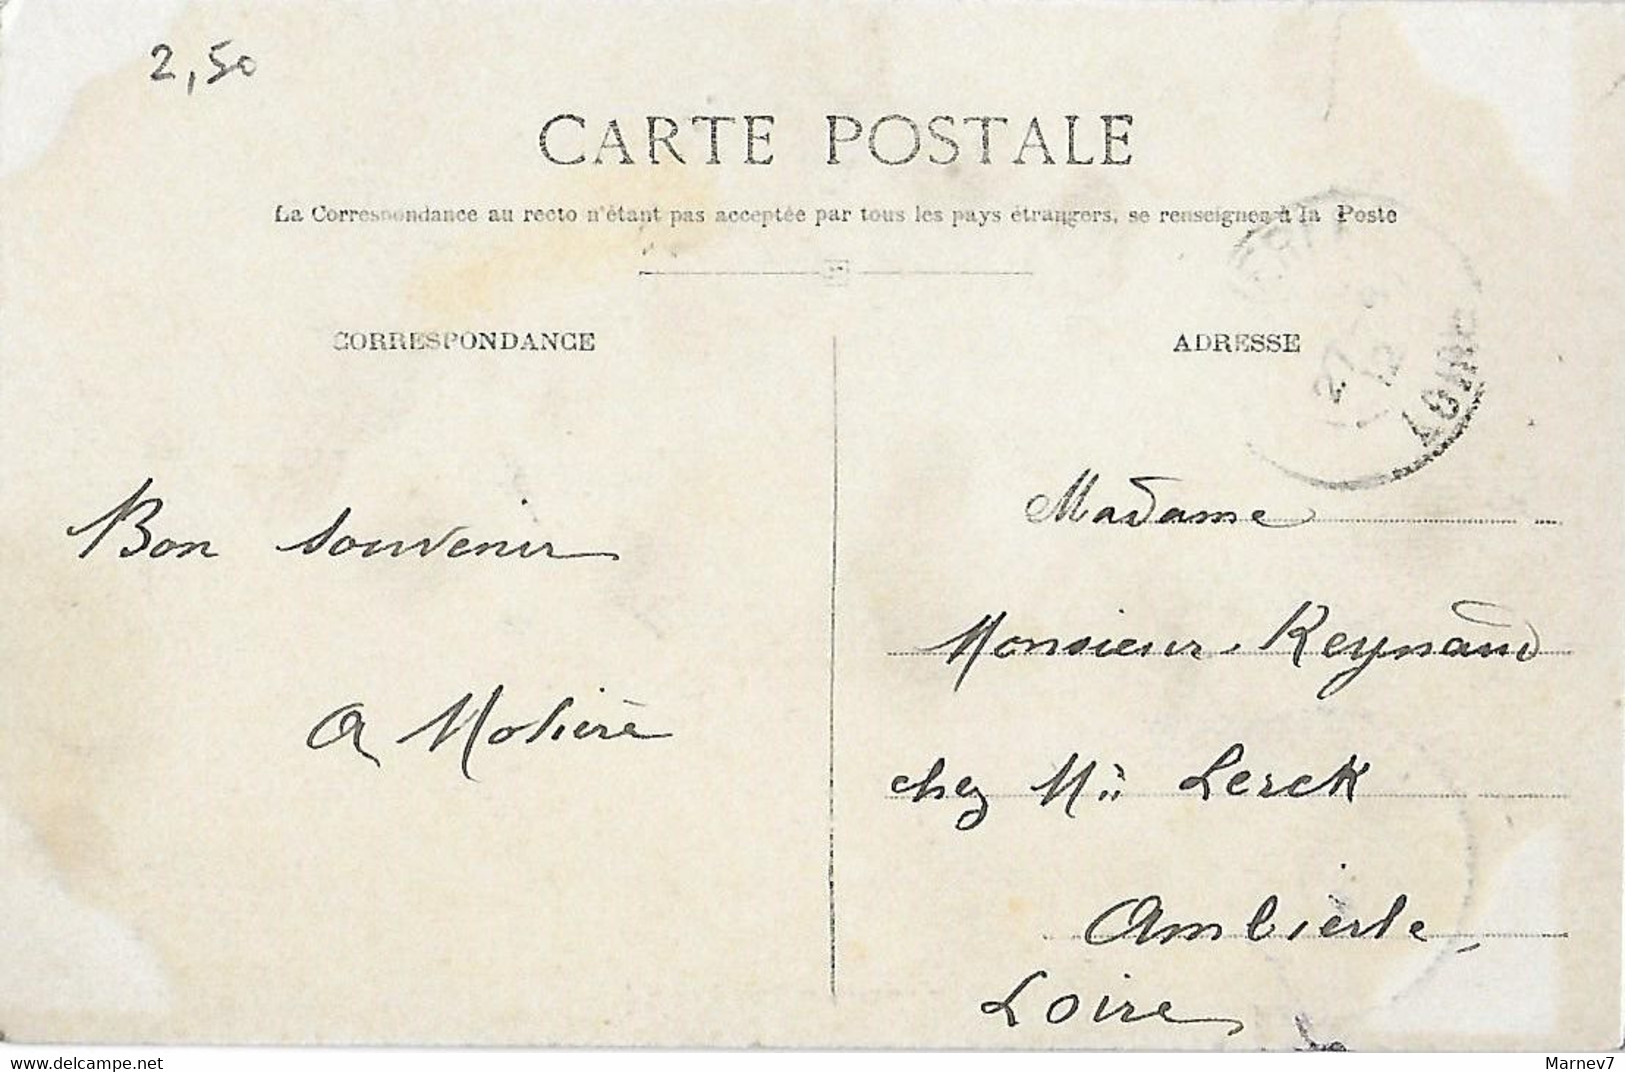 2,50
CARTE POSTALE
La Correspondance au recto n'étant pas acceptée par tous les pays étrangers, se renseigner à la Poste
CORRESPONDANCE
ADRESSE
27
12
LOIRE
Bon souvenir
A Molière
Madame
Monsieur Reynaud
chez Mr Lerck
Ambierle
Loire
https://www.delcampe.net
Marnev7